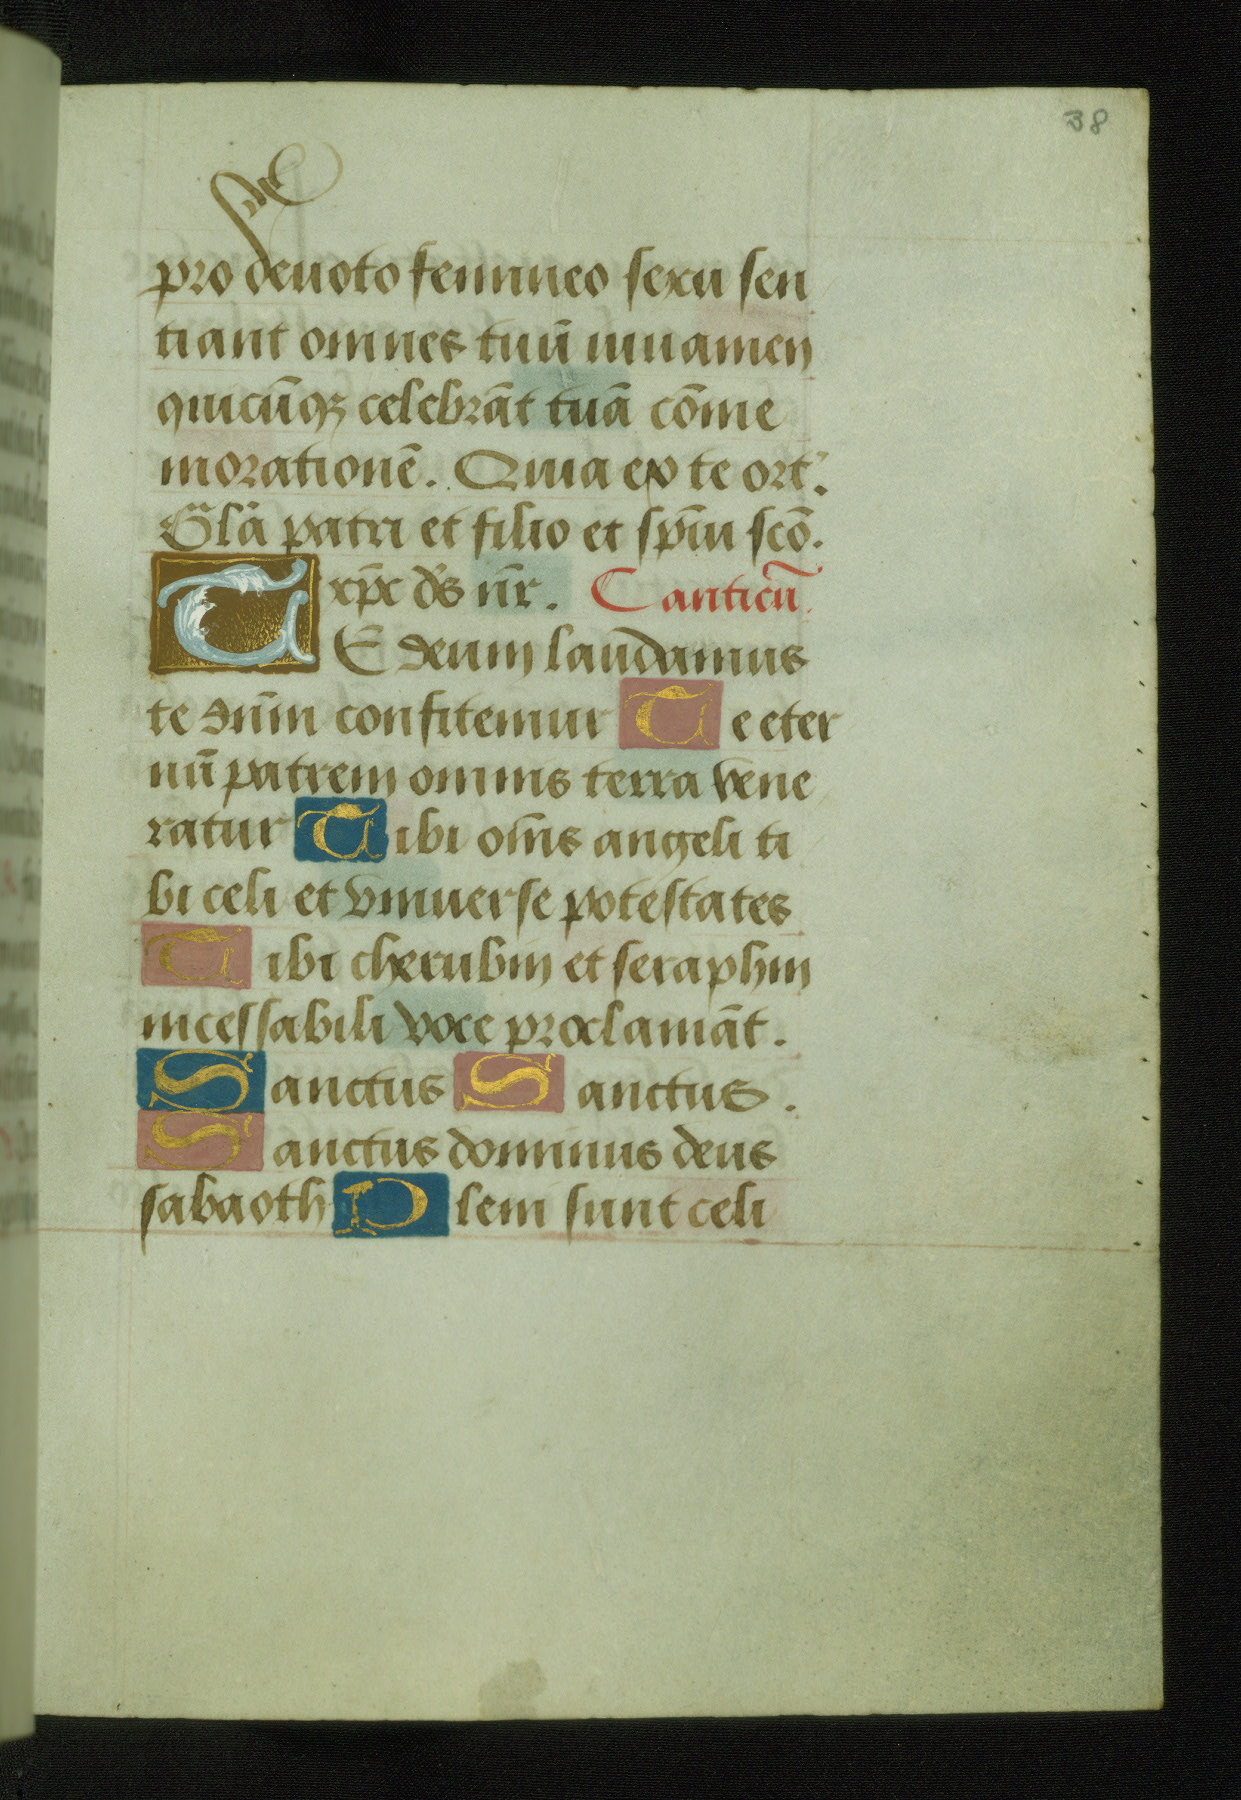 38
pro deuoto femineo sexu sen
tiant omnes tuū iuuamen
quicūq; celebrāt tuā cōme
morationē. Quia ex te ort'.
Glā patri et filio et sp̄iu scō.
xp̄c ds nr̄. Canticū.
TE deum laudamus
te dnm̄ confitemur Te eter
nū patrem omnis terra vene
ratur Tibi om̄s angeli ti
bi celi et vniuerse potestates
Tibi cherubin et seraphin
incessabili voce proclamāt.
Sanctus Sanctus.
Sanctus dominus deus
sabaoth Pleni sunt celi